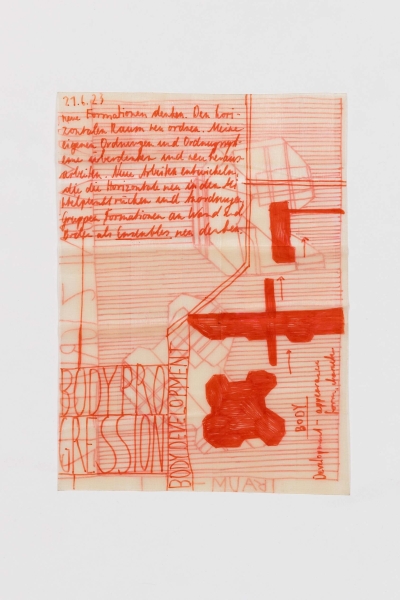 29.6.23
neue Formationen denken. Den hori-
zontalen Raum neu ordnen. Meine
eigenen Ordnungen und Ordnungssyst-
eme überdenken und neu heraus
arbeiten. Neue Arbeiten entwickeln,
die die Horizontale neu in den Mi
ttelpunkt rücken und
Gruppen Formationen an Wand und
Boden als Ensembles neu denken.
BODY PRO
GRESSION
BODY DEVELOPMENT
BODY
Development - appearance
form, character